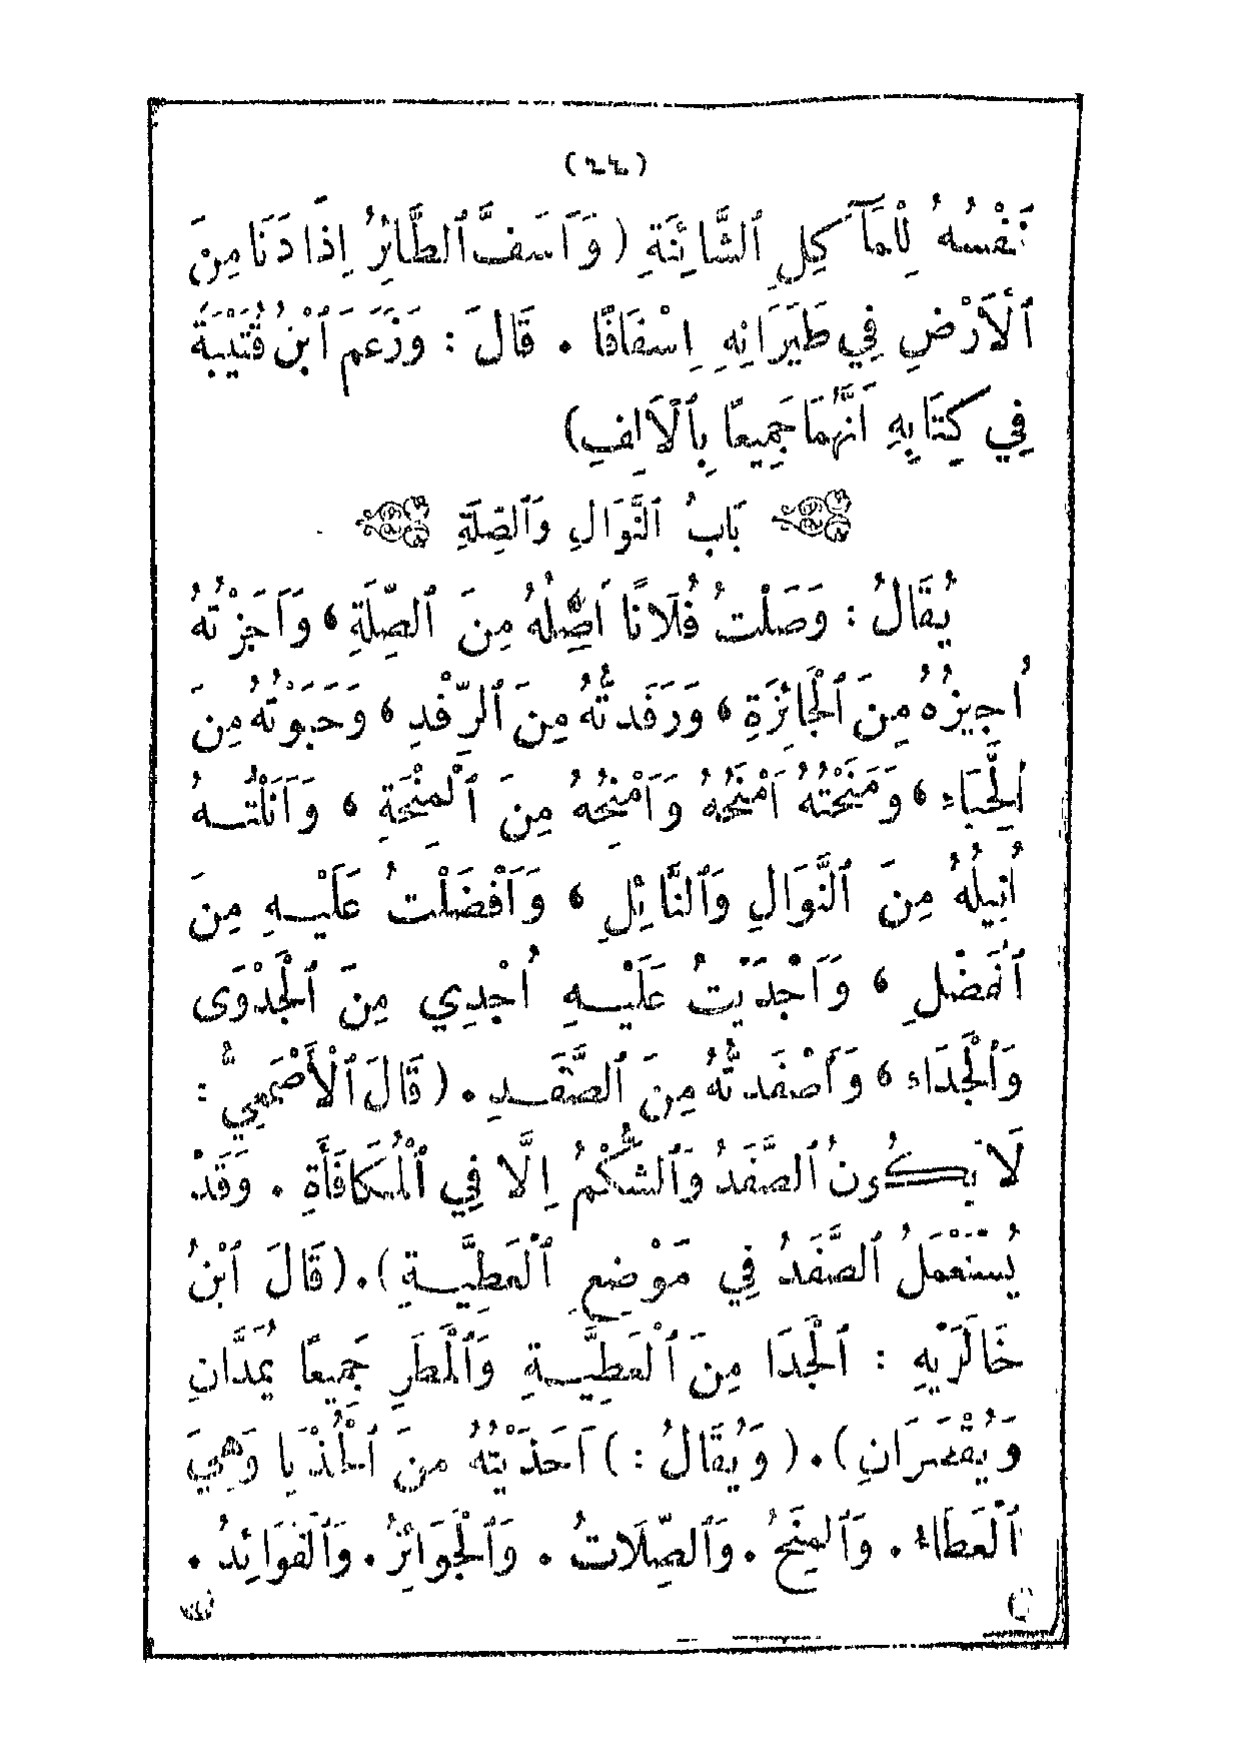 (٢٤)
نَفْسُهُ لِلْمَآكِلِ ٱلشَّائِنَةِ (وَأَسَفَّ ٱلطَّائِرُ إِذَا دَنَا مِنَ
ٱلْأَرْضِ فِي طَيَرَانِهِ إِسْفَافًا . قَالَ : وَزَعَمَ ٱبْنُ قُتَيْبَةَ
فِي كِتَابِهِ أَنَّهُمَا جَمِيعًا بِٱلْأَلِفِ)
بَابُ ٱلنَّوَالِ وَٱلصِّلَةِ
يُقَالُ : وَصَلْتُ فُلَانًا أَصِلُهُ مِنَ ٱلصِّلَةِ ، وَأَجَزْتُهُ
أُجِيزُهُ مِنَ ٱلْجَائِزَةِ ، وَرَفَدتُّهُ مِنَ ٱلرِّفْدِ ، وَحَبَوْتُهُ مِنَ
ٱلْحِبَاءِ ، وَمَنَحْتُهُ أَمْنَحُهُ وَأَمْنِحُهُ مِنَ ٱلْمِنْحَةِ ، وَأَنَلْتُهُ
أُنِيلُهُ مِنَ ٱلنَّوَالِ وَٱلنَّائِلِ ، وَأَفْضَلْتُ عَلَيْهِ مِنَ
ٱلْفَضْلِ ، وَأَجْدَيْتُ عَلَيْهِ أُجْدِي مِنَ ٱلْجَدْوَى
وَٱلْجَدَاءِ ، وَأَصْفَدتُّهُ مِنَ ٱلصَّفَدِ . (قَالَ ٱلْأَصْمَعِيُّ :
لَا يَكُونُ ٱلصَّفَدُ وَٱلشُّكْمُ إِلَّا فِي ٱلْمُكَافَأَةِ . وَقَدْ
يُسْتَعْمَلُ ٱلصَّفَدُ فِي مَوْضِعِ ٱلْعَطِيَّةِ) . (قَالَ ٱبْنُ
خَالَوَيْهِ : ٱلْجَدَا مِنَ ٱلْعَطِيَّةِ وَٱلْمَطَرِ جَمِيعًا يُمَدَّانِ
وَيُقْصَرَانِ) . (وَيُقَالُ :) أَحْذَيْتُهُ مِنَ ٱلْحُذْيَا وَهِيَ
ٱلْعَطَاءُ . وَٱلْمِنَحُ . وَٱلصِّلَاتُ . وَٱلْجَوَائِزُ . وَٱلْفَوَائِدُ .